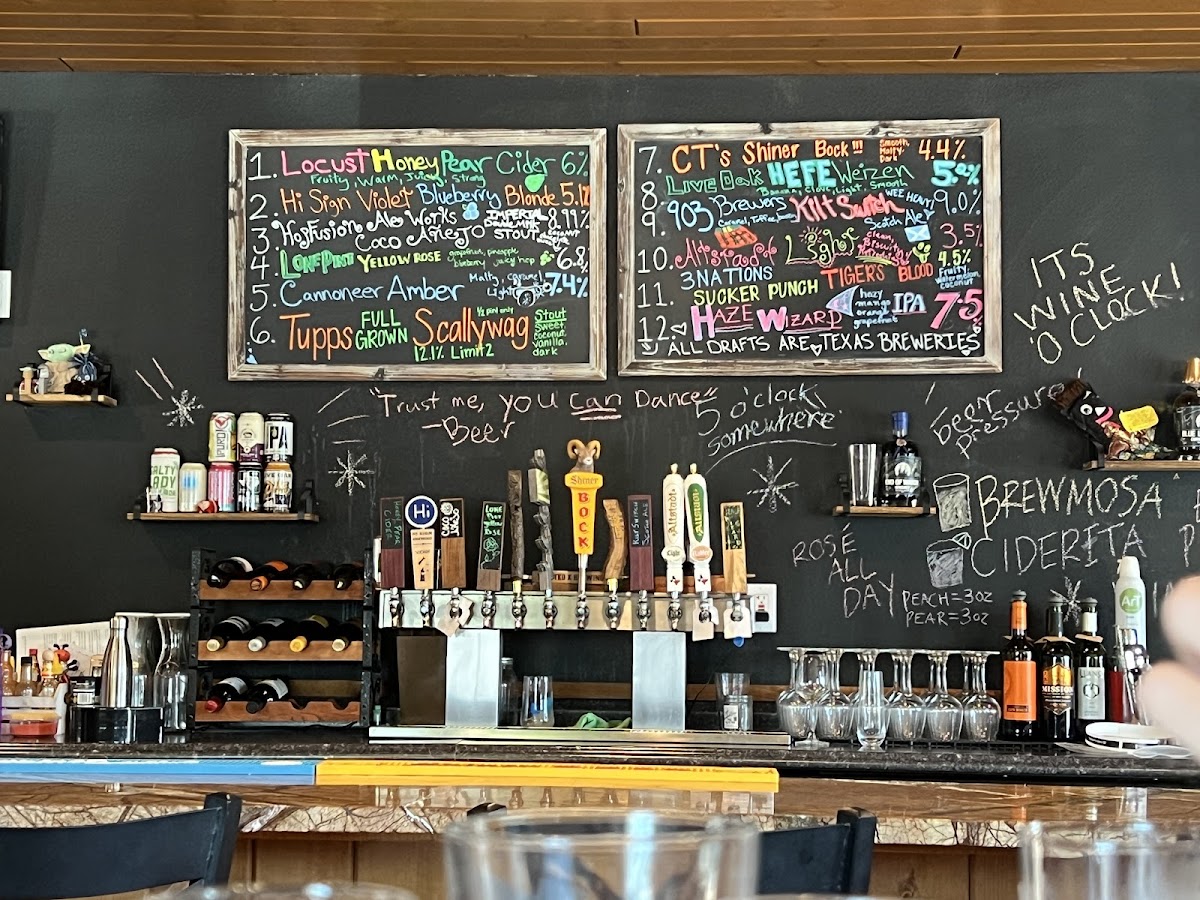 1. Locust Honey Pear Cider 6%
Fruity, Warm, Juicy, Strong
2. Hi Sign Violet Blueberry Blonde 5.1%
3. HopFusion Ale Works
Coco Añejo
IMPERIAL
STOUT
8.99%
4. LONE PINT YELLOW ROSE
grapefruit, pineapple,
blueberry juicy hop
6.8%
5. Cannoneer Amber
Malty, caramel
Light
7.4%
6. Tupps FULL GROWN Scallywag
1/2 pint only
12.1% Limit 2
Stout
Sweet,
coconut,
vanilla,
dark
7. CT's Shiner Bock!!!
Smooth,
Malty,
Dark
4.4%
8. LIVE Oak HEFE Weizen
Banana, Clove, Light, Smooth
5.2%
9. 903 Brewers Kilt Switch
Caramel, Toffee,
WEE HEAVY
Scotch Ale
9.0%
10. Altstadt Light
clean,
Biscuity,
3.5%
11. 3 NATIONS TIGERS BLOOD
4.5%
Fruity,
Watermelon,
coconut
SUCKER PUNCH
12. HAZE WIZARD
hazy
mango
orange
grapefruit
IPA 7.5
ALL DRAFTS ARE TEXAS BREWERIES
ITS
WINE
'O'CLOCK!
"Trust me, you can Dance"
-Beer
5 o'clock
somewhere
beer
pressure
BREWMOSA
CIDERITA
ROSÉ
ALL
DAY
PEACH=3oz
PEAR=3oz
Hi
COCO
LONE
Shiner
BOCK
KILT SWITCH
Altstadt
Altstadt
SALTY
LADY
IPA
MISSION
Art